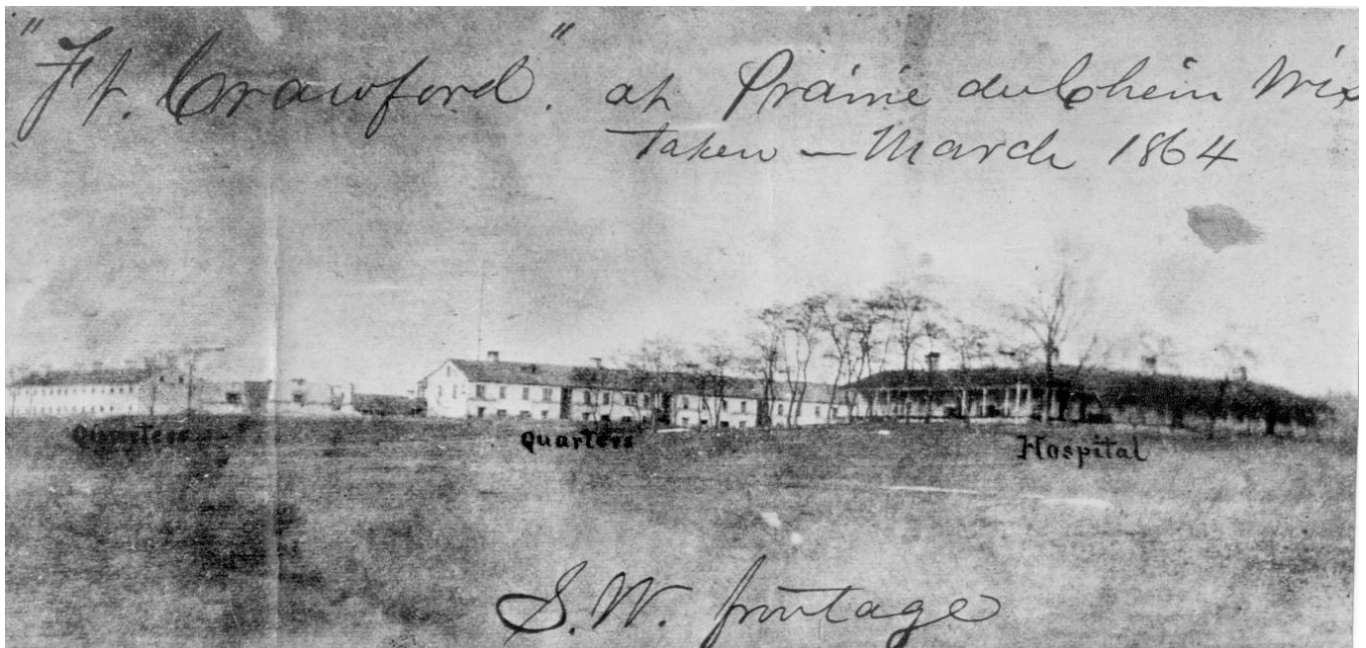 "Ft. Crawford". at Prairie du Chein Wis
taken - March 1864
Quarters
Quarters
Hospital
S.W. frontage